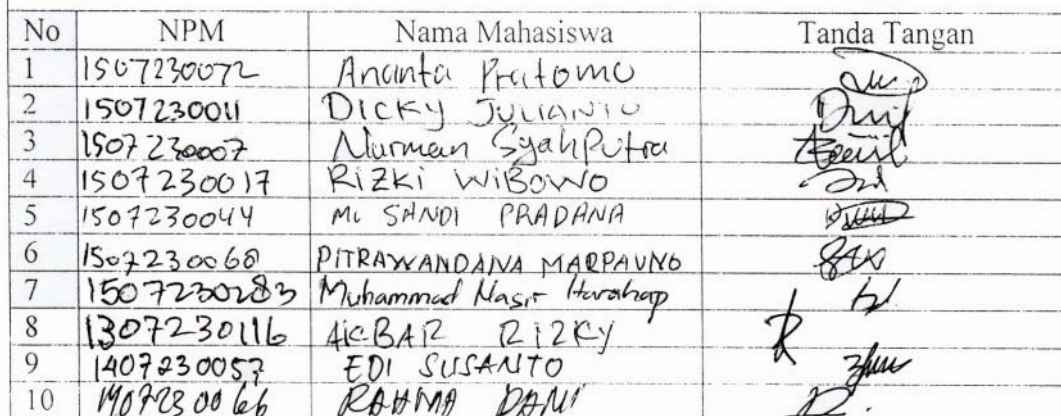 No NPM Nama Mahasiswa Tanda Tangan
1 1507230072 Ananta Pratomo
2 1507230011 DICKY JULIANTO
3 1507230007 Nurman Syahputra
4 1507230017 RIZKI WIBOWO
5 1507230044 M. SANDI PRADANA
6 1507230068 PITRAWANDANA MARPAUNG
7 1507230283 Muhammad Nasir Harahap
8 1307230116 AKBAR RIZKY
9 1407230057 EDI SUSANTO
10 1407230066 RAHMA DANI